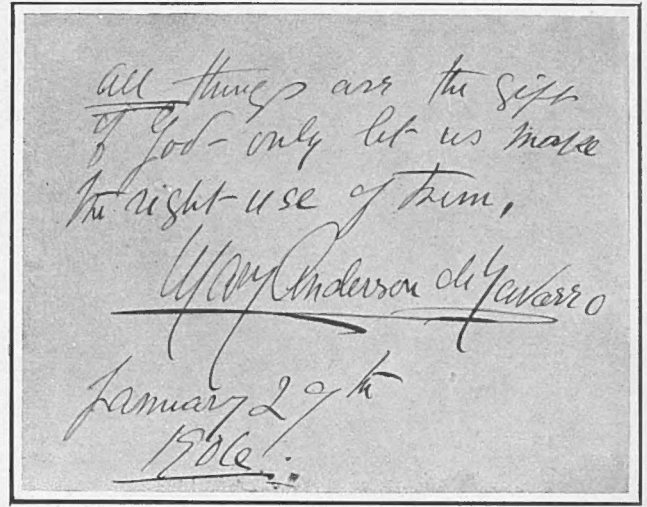 all things are the gift
of God - only let us make
the right use of them.
Mary Anderson de Navarro
January 29th
1906.